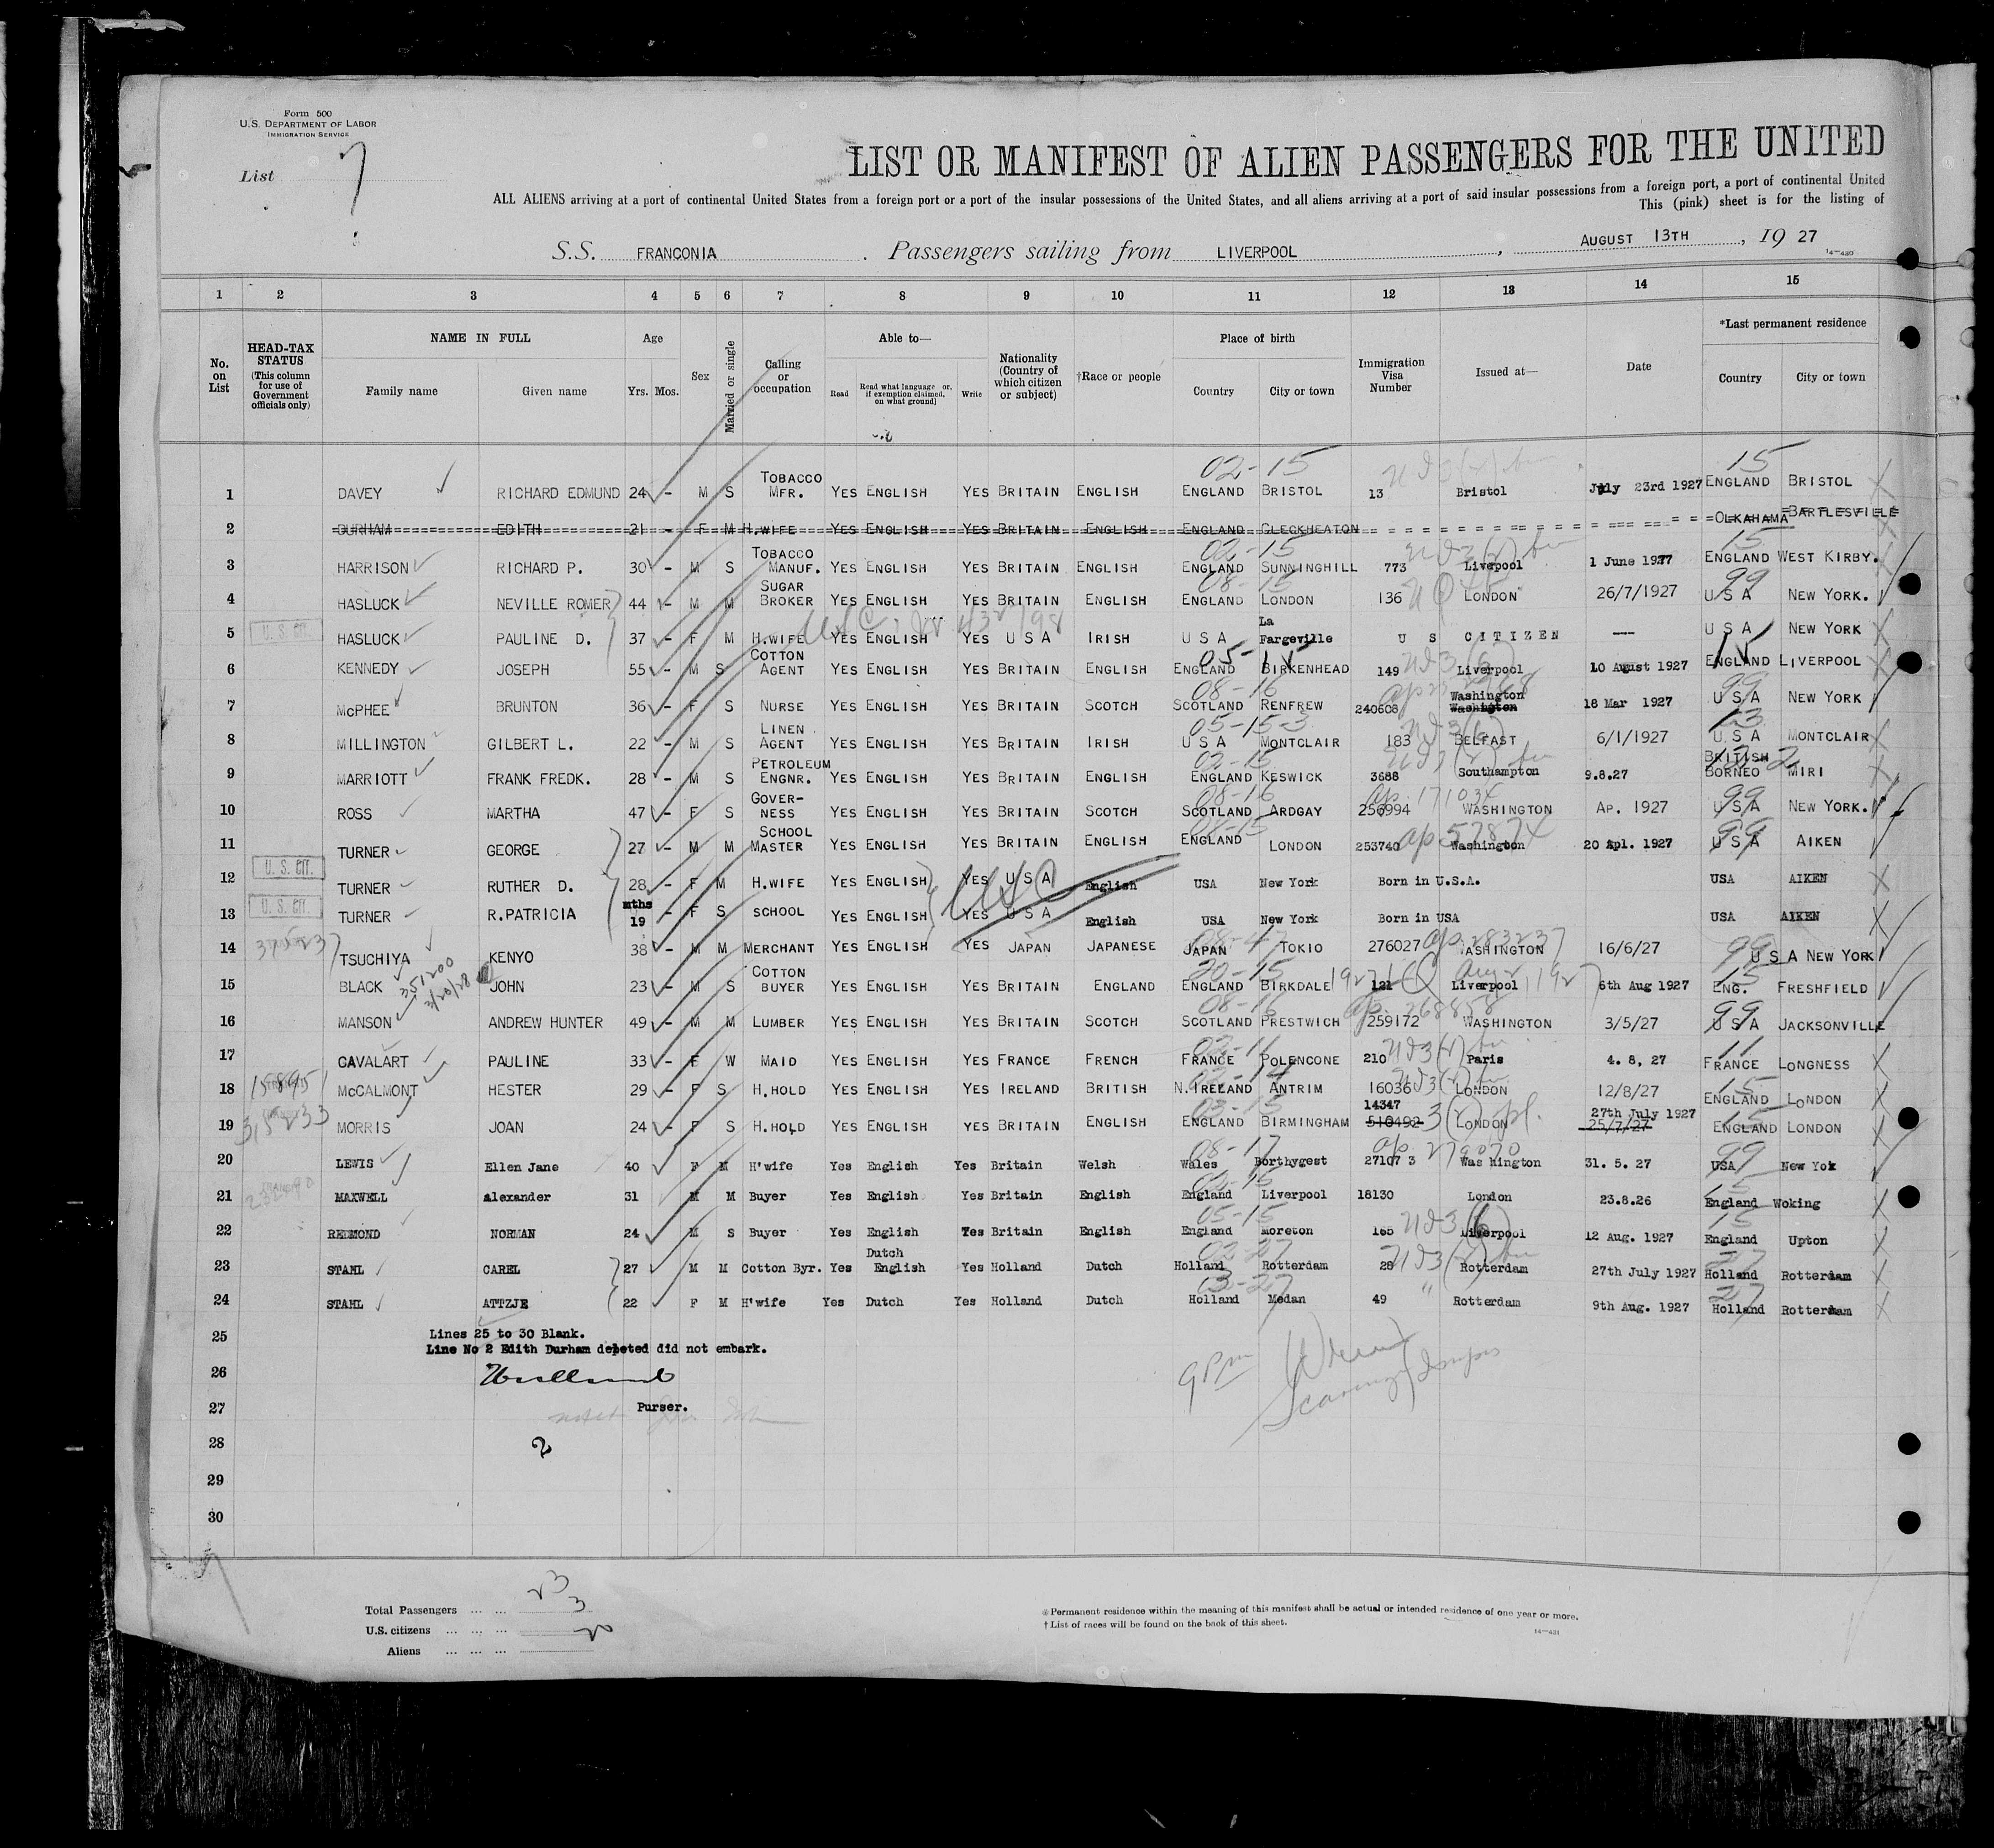 Form 500
U.S. DEPARTMENT OF LABOR
IMMIGRATION SERVICE
List 7
LIST OR MANIFEST OF ALIEN PASSENGERS FOR THE UNITED
ALL ALIENS arriving at a port of continental United States from a foreign port or a port of the insular possessions of the United States, and all aliens arriving at a port of said insular possessions from a foreign port, a port of continental United
This (pink) sheet is for the listing of
S.S. FRANCONIA . Passengers sailing from LIVERPOOL , AUGUST 13TH , 19 27
14—420
1 2 3 4 5 6 7 8 9 10 11 12 13 14 15
No. on List
HEAD-TAX STATUS (This column for use of Government officials only)
NAME IN FULL
Family name Given name
Age
Yrs. Mos.
Sex
Married or single
Calling or occupation
Able to—
Read Read what language or, if exemption claimed, on what ground] Write
Nationality (Country of which citizen or subject)
†Race or people
Place of birth
Country City or town
Immigration Visa Number
Issued at—
Date
*Last permanent residence
Country City or town
02-15 15
1 DAVEY RICHARD EDMUND 24 - M S TOBACCO MFR. YES ENGLISH YES BRITAIN ENGLISH ENGLAND BRISTOL 13 Bristol July 23rd 1927 ENGLAND BRISTOL
2 DURHAM EDITH 21 - F M H.WIFE YES ENGLISH YES BRITAIN ENGLISH ENGLAND CLECKHEATON OLKAHAMA BARTLESVIELE
02-15 15
3 HARRISON RICHARD P. 30 - M S TOBACCO MANUF. YES ENGLISH YES BRITAIN ENGLISH ENGLAND SUNNINGHILL 773 Liverpool 1 June 1927 ENGLAND WEST KIRBY.
08-15 99
4 HASLUCK NEVILLE ROMER 44 - M M SUGAR BROKER YES ENGLISH YES BRITAIN ENGLISH ENGLAND LONDON 136 LONDON 26/7/1927 U S A NEW YORK.
5 U. S. CIT. HASLUCK PAULINE D. 37 - F M H.WIFE YES ENGLISH YES U S A IRISH U S A La Fargeville U S CITIZEN --- U S A NEW YORK
05-15 15
6 KENNEDY JOSEPH 55 - M S COTTON AGENT YES ENGLISH YES BRITAIN ENGLISH ENGLAND BIRKENHEAD 149 Liverpool 10 August 1927 ENGLAND LIVERPOOL
08-16 99
7 McPHEE BRUNTON 36 - F S NURSE YES ENGLISH YES BRITAIN SCOTCH SCOTLAND RENFREW 240608 Washington Washington 18 Mar 1927 U S A NEW YORK
05-15-3
8 MILLINGTON GILBERT L. 22 - M S LINEN AGENT YES ENGLISH YES BRITAIN IRISH U S A MONTCLAIR 183 BELFAST 6/1/1927 U S A MONTCLAIR
02-15
9 MARRIOTT FRANK FREDK. 28 - M S PETROLEUM ENGNR. YES ENGLISH YES BRITAIN ENGLISH ENGLAND KESWICK 3688 Southampton 9.8.27 BRITISH BORNEO MIRI
08-16 ap. 171034 99
10 ROSS MARTHA 47 - F S GOVER- NESS YES ENGLISH YES BRITAIN SCOTCH SCOTLAND ARDGAY 256994 WASHINGTON AP. 1927 U S A NEW YORK.
99
11 TURNER GEORGE 27 - M M SCHOOL MASTER YES ENGLISH YES BRITAIN ENGLISH ENGLAND LONDON 253740 Washington 20 Apl. 1927 U S A AIKEN
12 U. S. CIT. TURNER RUTHER D. 28 - F M H.WIFE YES ENGLISH YES U S A English USA New York Born in U.S.A. USA AIKEN
13 U. S. CIT. TURNER R.PATRICIA mths 19 - F S SCHOOL YES ENGLISH YES U S A English USA New York Born in USA USA AIKEN
14 TSUCHIYA KENYO 38 - M M MERCHANT YES ENGLISH YES JAPAN JAPANESE JAPAN TOKIO 276027 ap. 283237 WASHINGTON 16/6/27 99 U S A NEW YORK
20-15 15
15 BLACK 351200 3/20/28 JOHN 23 - M S COTTON BUYER YES ENGLISH YES BRITAIN ENGLAND ENGLAND BIRKDALE 121 Liverpool 6th Aug 1927 ENG. FRESHFIELD
08-16 ap. 268858 99
16 MANSON ANDREW HUNTER 49 - M M LUMBER YES ENGLISH YES BRITAIN SCOTCH SCOTLAND PRESTWICH 259172 WASHINGTON 3/5/27 U S A JACKSONVILLE
02-11 11
17 CAVALART PAULINE 33 - F W MAID YES ENGLISH YES FRANCE FRENCH FRANCE POLENCONE 210 Paris 4. 8, 27 FRANCE LONGNESS
02-14 15
18 McCALMONT HESTER 29 - F S H.HOLD YES ENGLISH YES IRELAND BRITISH N.IRELAND ANTRIM 16036 LONDON 12/8/27 ENGLAND LONDON
03-15 15
19 MORRIS JOAN 24 - F S H.HOLD YES ENGLISH YES BRITAIN ENGLISH ENGLAND BIRMINGHAM 14347 510492 LONDON 27th July 1927 25/7/27 ENGLAND LONDON
08-17 ap 279070 99
20 LEWIS Ellen Jane 40 F M H'wife Yes English Yes Britain Welsh Wales Borthygest 27107 3 Was hington 31. 5. 27 USA New Yok
15
21 MAXWELL Alexander 31 M M Buyer Yes English Yes Britain English England Liverpool 18130 London 23.8.26 England Woking
05-15 15
22 REDMOND NORMAN 24 M S Buyer Yes English Yes Britain English England Moreton 165 Liverpool 12 Aug. 1927 England Upton
02-27 27
23 STAHL CAREL 27 M M Cotton Byr. Yes Dutch English Yes Holland Dutch Holland Rotterdam 28 Rotterdam 27th July 1927 Holland Rotterdam
03-27 27
24 STAHL ATTZJE 22 F M H'wife Yes Dutch Yes Holland Dutch Holland Medan 49 Rotterdam 9th Aug. 1927 Holland Rotterdam
25 Lines 25 to 30 Blank.
Line No 2 Edith Durham deleted did not embark.
26
27 Purser.
9 Pm
28 2
29
30
Total Passengers ... ... 23
U.S. citizens ... ... ... 3
Aliens ... ... ... 20
*Permanent residence within the meaning of this manifest shall be actual or intended residence of one year or more.
†List of races will be found on the back of this sheet.
14—421